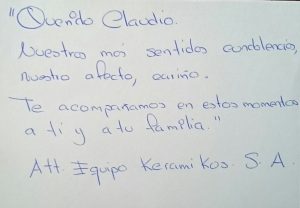 "Querido Claudio.
Nuestras más sentidas condolencias,
nuestro afecto, cariño.
Te acompañamos en estos momentos
a ti y a tu familia."
Att. Equipo Keramikos. S. A.